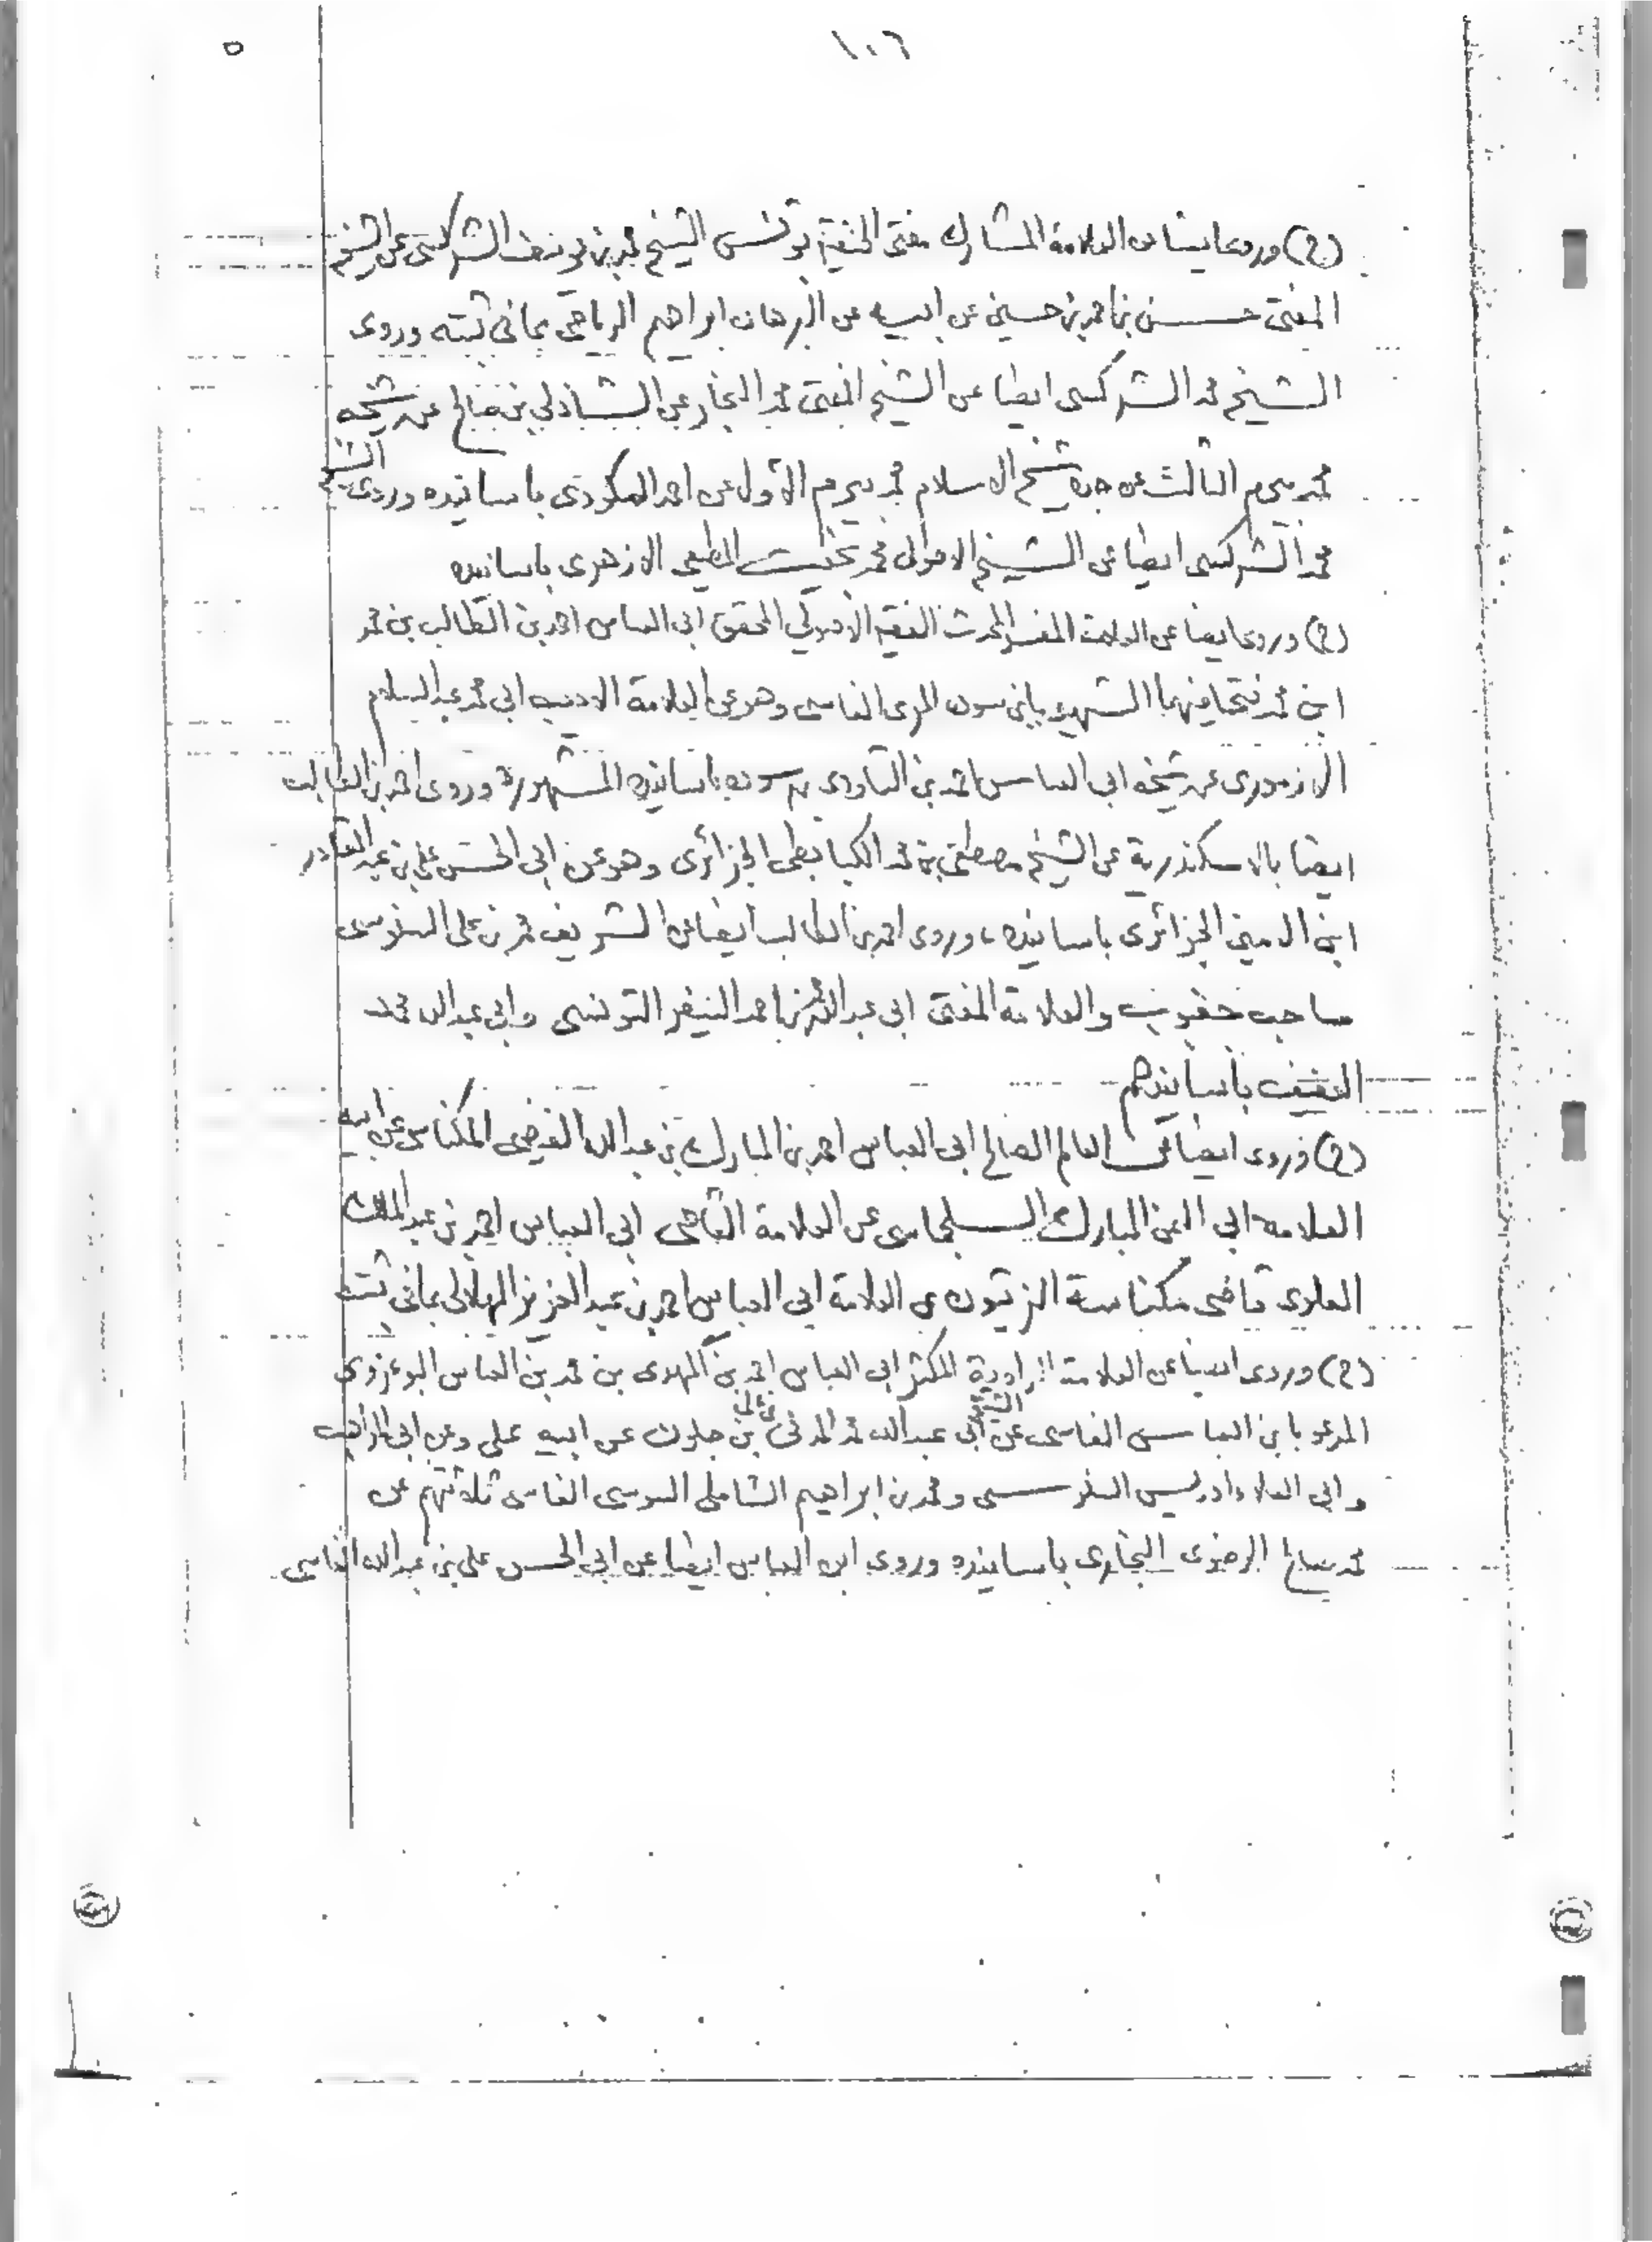 ١٠٦
٥
(ح) وروى ايضا عن العلامة المشارك مفتى الحنفية بتونس الشيخ محمد بن يوسف الشركسى عن الشيخ
المفتى حسن بن احمد بن حسين عن ابيه عن البرهان ابراهيم الرياحى بما فى ثبته وروى
الشيخ محمد الشركسى ايضا عن الشيخ المفتى محمد النجار عن الشاذلى بن صالح عن شيخه
محمد بيرم الثالث عن جده شيخ الاسلام محمد بيرم الأول عن احمد المكودى باسانيده وروى الشيخ
محمد الشركسى ايضا عن الشيخ الاصولى محمد بخيت المطيعى الازهرى باسانيده
(ح) وروى ايضا عن العلامة المفسر المحدث الفقيه الأصولي المحقق ابى العباس احمد بن الطالب بن محمد
ابن محمد فتحا فيهما الشهير بابن سوده المرى الفاسى وهو عن العلامة الاديب ابى محمد عبد السلام
الازمورى عن شيخه ابى العباس احمد بن التاودى بن سوده باسانيده المشهورة وروى احمد بن الطالب
ايضا بالاسكندرية عن الشيخ مصطفى بن محمد الكبابطى الجزائرى وهو عن ابى الحسن على بن عبد القادر
ابن الامين الجزائرى باسانيده، وروى احمد بن الطالب ايضا عن الشريف محمد بن على السنوسى
صاحب جغبوب والعلامة المفتى ابى عبد الله محمد بن احمد النيفر التونسى وابى عبد الله محمد
العفيف بأسانيدهم
(ح) وروى ايضا عن العالم الصالح ابى العباس احمد بن المبارك بن عبد الله الفيضى المكناسى عن ابيه
العلامة ابى اليمن المبارك السلجماسى عن العلامة القاضى ابى العباس احمد بن عبد الملك
العلوى قاضى مكناسة الزيتون عن العلامة ابى العباس احمد بن عبد العزيز الهلالى بما فى ثبته
(ح) وروى ايضا عن العلامة الراوية المكثر ابى العباس احمد بن المهدى بن محمد بن العباس البوعزوى
المدعو بابن العباس الفاسى عن الشيخ ابى عبد الله محمد المدنى بن على بن جلون عن ابيه على وعن ابى المواهب
وابى العلاء ادريس السنوسى ومحمد بن ابراهيم الشاملى السوسى الفاسى ثلاثتهم عن
محمد صالح الرضوى البخارى باسانيده وروى ابن العباس ايضا عن ابى الحسن على بن عبد الله الفاسى